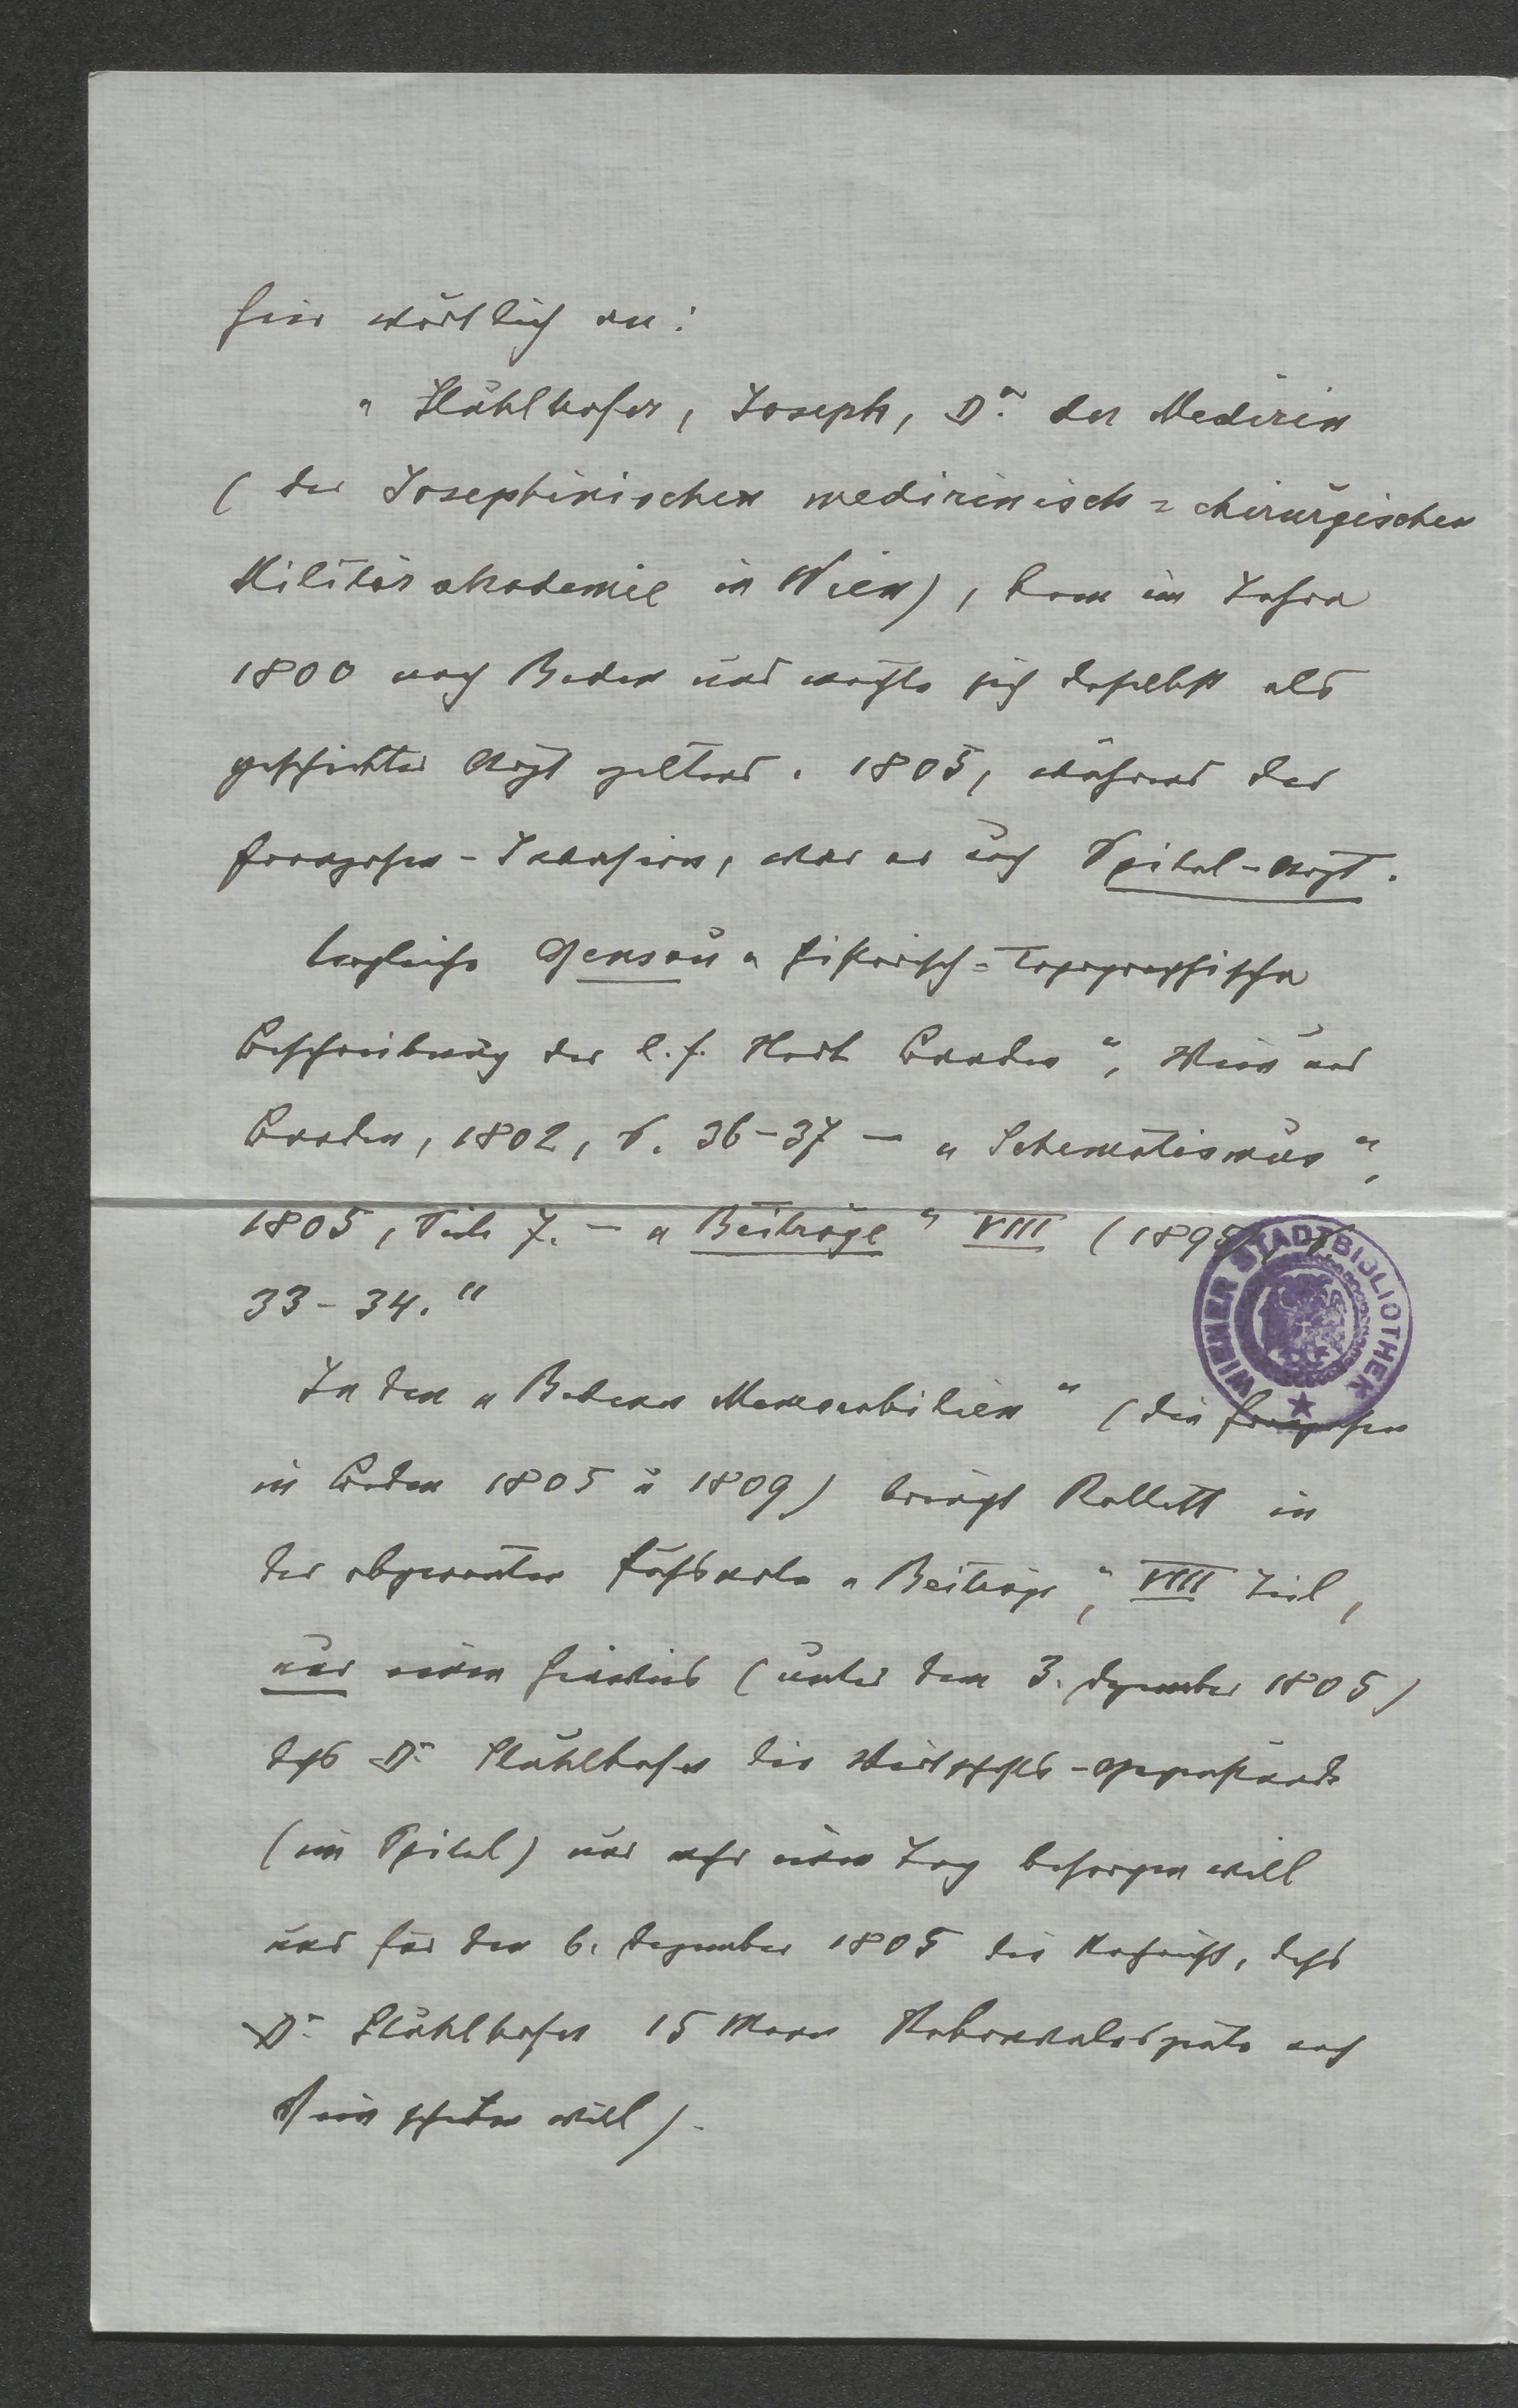 hier wörtlich an:
„Stühlhofer, Joseph, Dr. der Medizin
(der Josephinischen medizinisch=chirurgischen
Militärakademie in Wien), kam im Jahre
1800 nach Baden und machte sich daselbst als
geschickter Arzt geltend. 1805, während der
Franzosen-Invasion, war er auch Spital-Arzt.
Vergleiche Gensau „Historisch=Topographische
Beschreibung der l. f. Stadt Baaden“, Wien und
Baaden, 1802, S. 36–37 — „Schematismus“,
1805, Seite 7. — „Beiträge“ VIII (1895), S.
33–34.“
In den „Badener Memorabilien“ (die Franzosen
in Baden 1805 u 1809) bringt Rollett in
der obgenannten „Beiträge“, VIII Teil,
nur einen Hinweis (unter dem 3. Dezember 1805)
daß Dr. Stühlhofer die Wirtschafts-Gegenstände
(im Spital) nur mehr einen Tag besorgen will
und für den 6. Dezember 1805 die Nachricht, daß
Dr. Stühlhofer 15 Mann Rekonvaleszente nach
Wien schicken will).
WIENER STADTBIBLIOTHEK